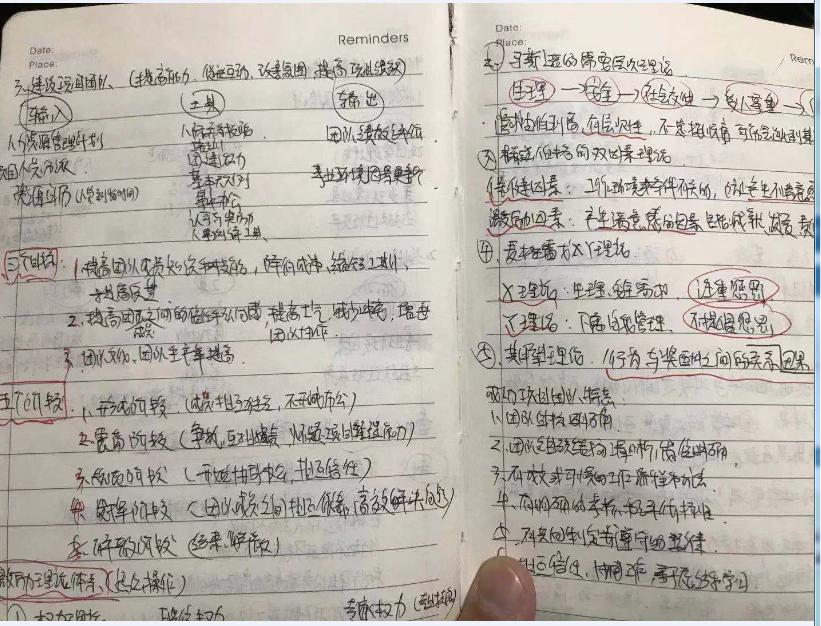 Reminders
Date:
Place:
3. 建设项目团队 (提高能力、促进互动、改善氛围 提高项目绩效)
输入 工具 输出
人力资源管理计划 人际关系技能 团队绩效评价
项目人员分派 培训 事业环境因素更新
资源日历 (人员到位时间) 团建活动
基本规则
集中办公
认可与奖励
人事测评工具
三个目标: 1. 提高团队成员知识和技能, 降低成本、缩短工期、
提高质量
2. 提高团队成员之间的信任和认同感, 提高士气、减少冲突、增进
团队协作
3. 团队文化、团队生产率提高
五个阶段: 1. 形成阶段 (成员相互独立、不开诚布公)
2. 震荡阶段 (争执、互相指责、怀疑项目经理能力)
3. 规范阶段 (开始协同办公, 相互信任)
4. 发挥阶段 (团队成员之间相互依靠, 高效解决问题)
5. 解散阶段 (结束、解散)
激励理论体系、
① 权力 职位权力 专家权力
Date:
Place:
Rem
2. 马斯洛的需要层次理论
生理 → 安全 → 社会交往 → 受人尊重 →
③ 赫兹伯格的双因素理论
保健因素: 工作环境或条件有关的,
激励因素: 产生满意感的因素 包括成就、
④ 麦格雷戈 XY理论
X理论: 生理、安全需求 注重惩罚
Y理论: 下属自我管理 不提倡惩罚
⑤ 期望理论: 行为与奖酬之间的关系 因果
成功项目团队特点
1. 团队目标明确
2. 团队组织结构清晰, 岗位明确
3. 有成文或习惯的工作流程和方法
4. 有明确的考核和评价标准
5. 共同制定并遵守的纪律
相互信任、协同工作、善于总结和学习